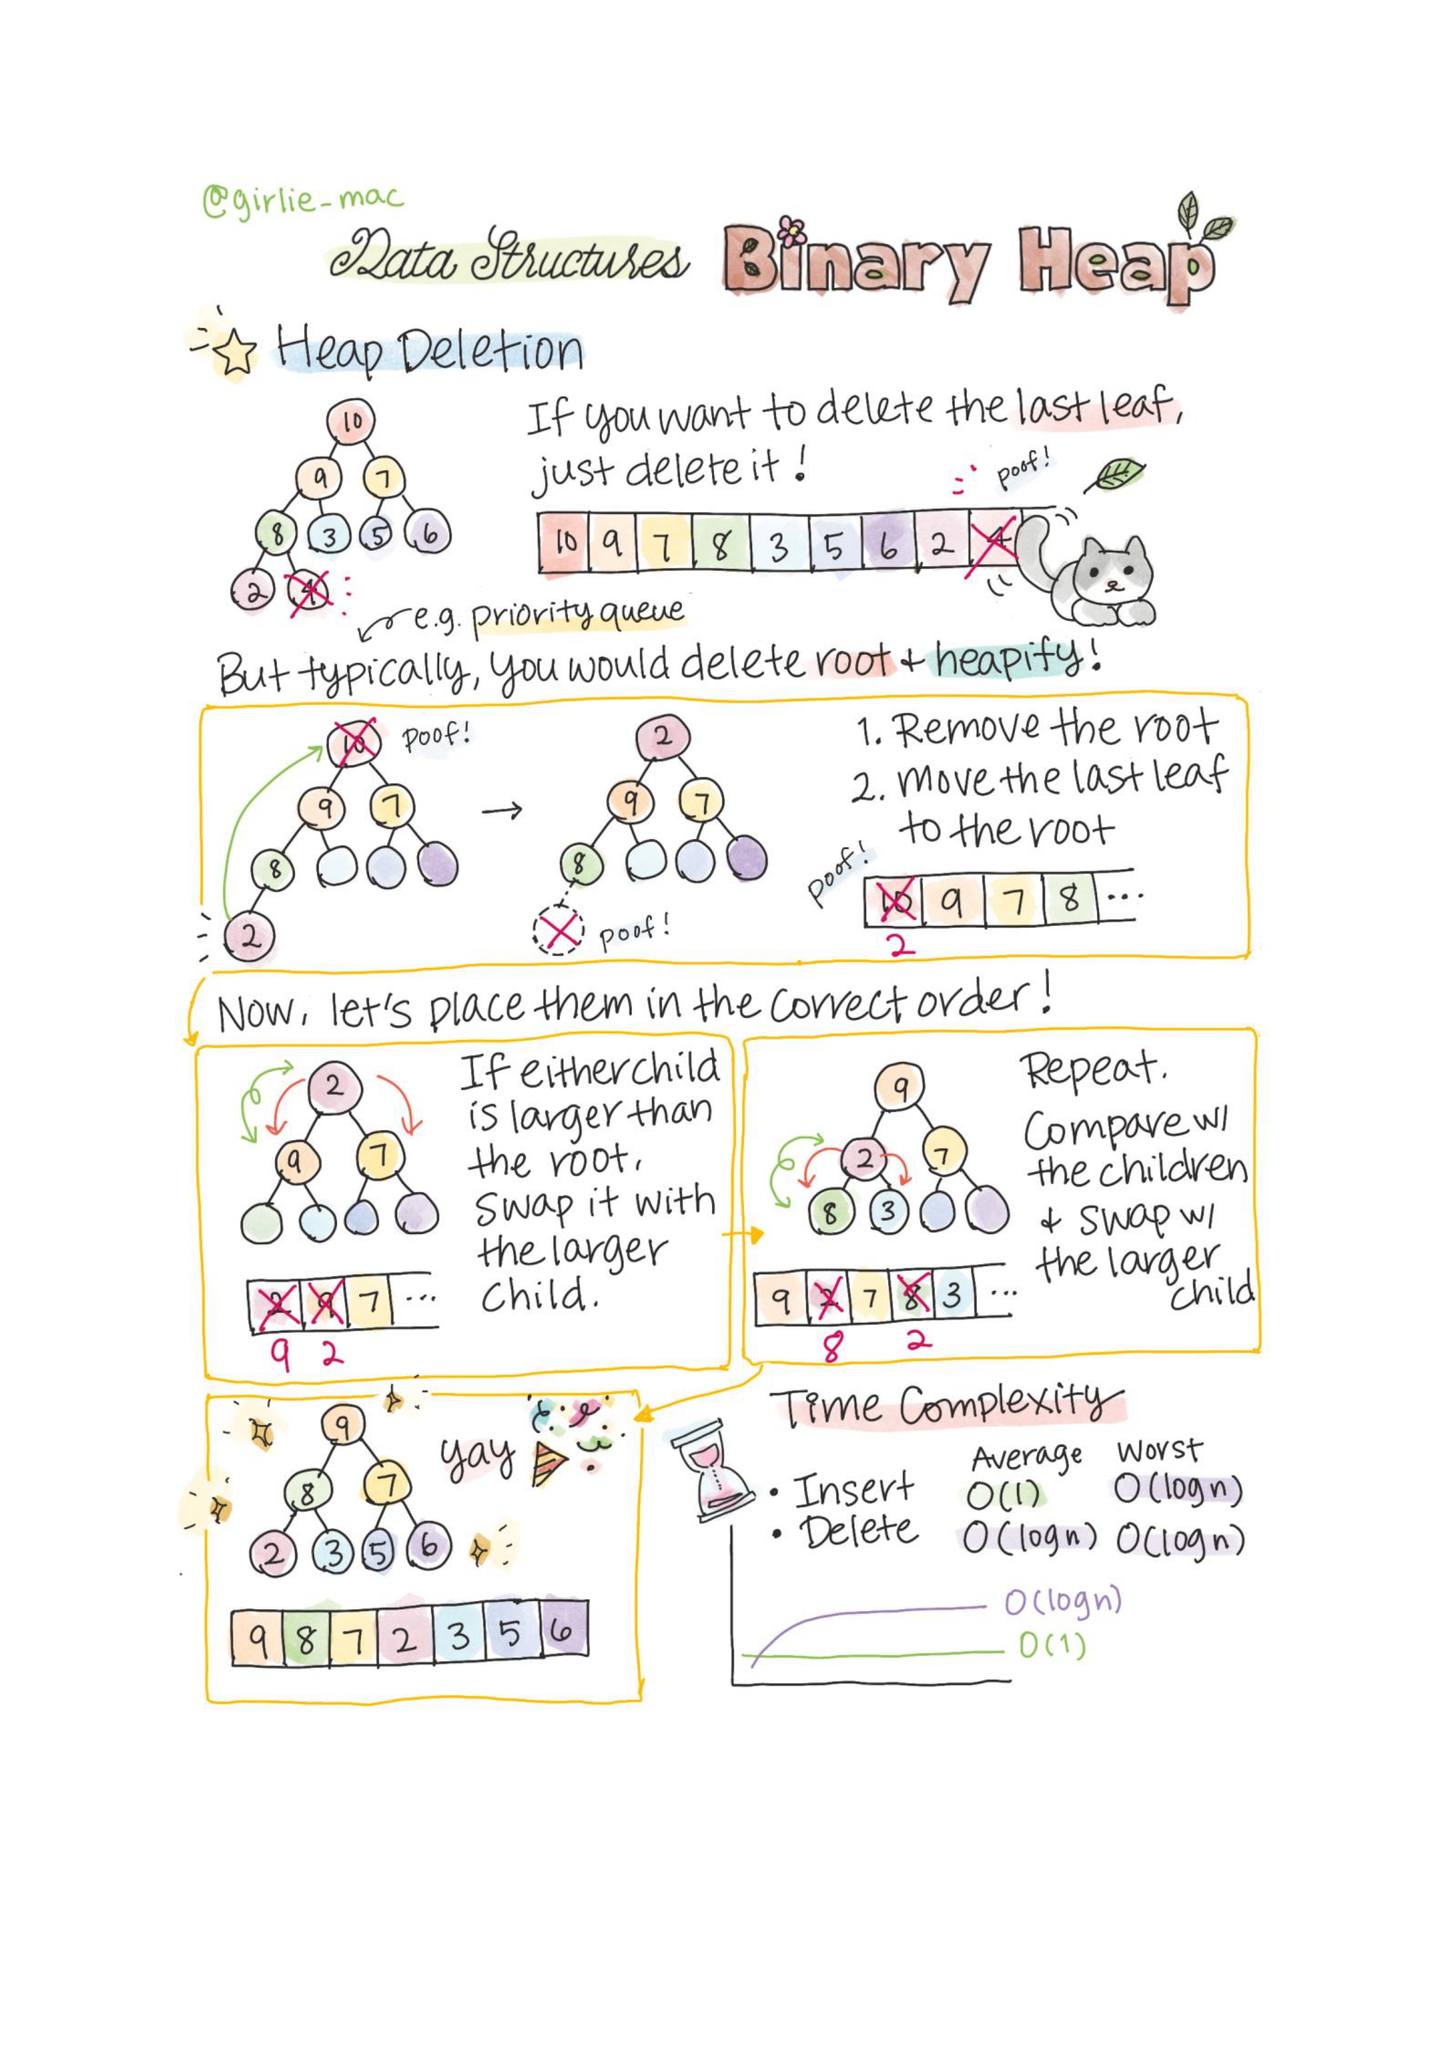 @girlie_mac
Data Structures Binary Heap
Heap Deletion
10
9 7
8 3 5 6
2 4
If you want to delete the last leaf,
just delete it!
poof!
10 9 7 8 3 5 6 2 4
e.g. priority queue
But typically, you would delete root + heapify!
10 poof!
9 7
8
2
→
2
9 7
8
poof!
1. Remove the root
2. Move the last leaf
to the root
poof!
10 9 7 8 ...
2
Now, let's place them in the correct order!
2
9 7
If either child
is larger than
the root,
swap it with
the larger
child.
2 9 7 ...
9 2
9
2 7
8 3
Repeat.
Compare w/
the children
+ swap w/
the larger
child
9 2 7 8 3 ...
8 2
9
8 7
2 3 5 6
yay
9 8 7 2 3 5 6
Time Complexity
Average Worst
• Insert O(1) O(log n)
• Delete O(log n) O(log n)
O(log n)
O(1)